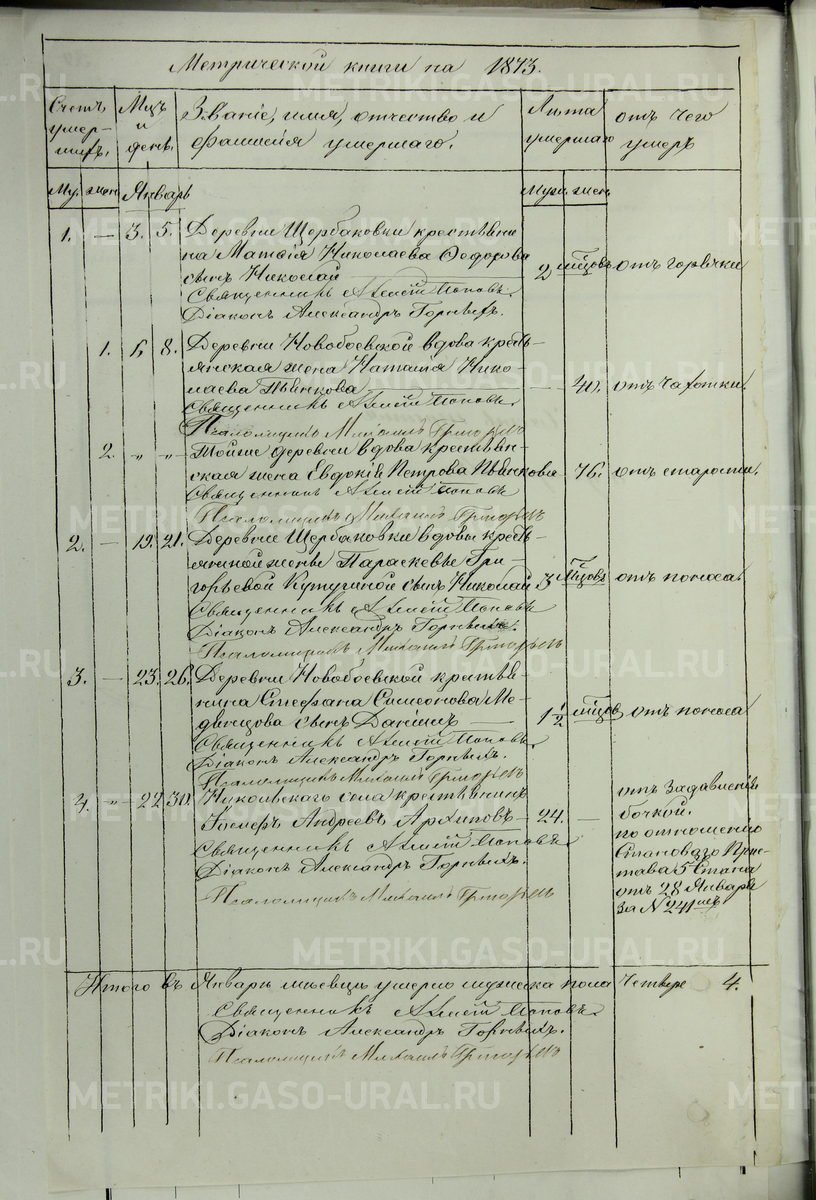 Метрической книги на 1873.
Счетъ умер-шихъ.
Мцъ и день.
Званіе, имя, отчество и фамилія умершаго.
Лѣта умершаго
отъ чего умеръ
Му. жен
Январь
Муж. жен.
1. — 3. 5. Деревни Щербаковки крестьяни
на Матѳія Николаева Ѳедорова
сынъ Николай — 2 мѣсцовъ отъ горячки
Священникъ Алексій Поповъ.
Діаконъ Александръ Горныхъ.
1. 6. 8. Деревни Новобоевской вдова кресть-
янская жена Наталія Нико-
лаева Пьянкова — — 40. отъ чахотки.
Священникъ Алексій Поповъ.
Псаломщикъ Михаилъ Григорьевъ
2. „ „ — Тойже деревни вдова крестьян-
ская жена Евдокія Петрова Пьянкова — 76. отъ старости.
Священникъ Алексій Поповъ
Псаломщикъ Михаилъ Григорьевъ
2. — 19. 21. Деревни Щербаковки вдовы кресть-
янской жены Параскевы Гри-
горьевой Кутугиной сынъ Николай 3 мѣсцовъ отъ поноса.
Священникъ Алексій Поповъ
Діаконъ Александръ Горныхъ.
Псаломщикъ Михаилъ Григорьевъ
3. — 23. 26. Деревни Новобоевской крестья-
нина Стефана Симеонова Ме-
динцова сынъ Даніилъ — 1 1/2 мѣсцов отъ поноса
Священникъ Алексій Поповъ.
Діаконъ Александръ Горныхъ.
Псаломщикъ Михаилъ Григорьевъ
4. „ — 22 30. села крестьянинъ
Іосифъ Андреевъ Архиповъ — 24. —
Священникъ Алексій Поповъ
Діаконъ Александръ Горныхъ.
Псаломщикъ Михаилъ Григорьевъ
отъ задавленія
бочкой.
по отношенію
Становаго Прис-
тава 5 Стана
отъ 28 Января
за N 241
Итого въ Январѣ мѣсяцѣ умерло мужеска пола четверо 4.
Священникъ Алексій Поповъ.
Діаконъ Александръ Горныхъ.
Псаломщикъ Михаилъ Григорьевъ
METRIKI.GASO-URAL.RU